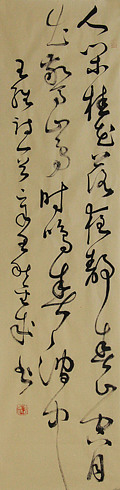 人闲桂花落夜静春山空月
出惊山鸟时鸣春涧中
王维诗一首
书